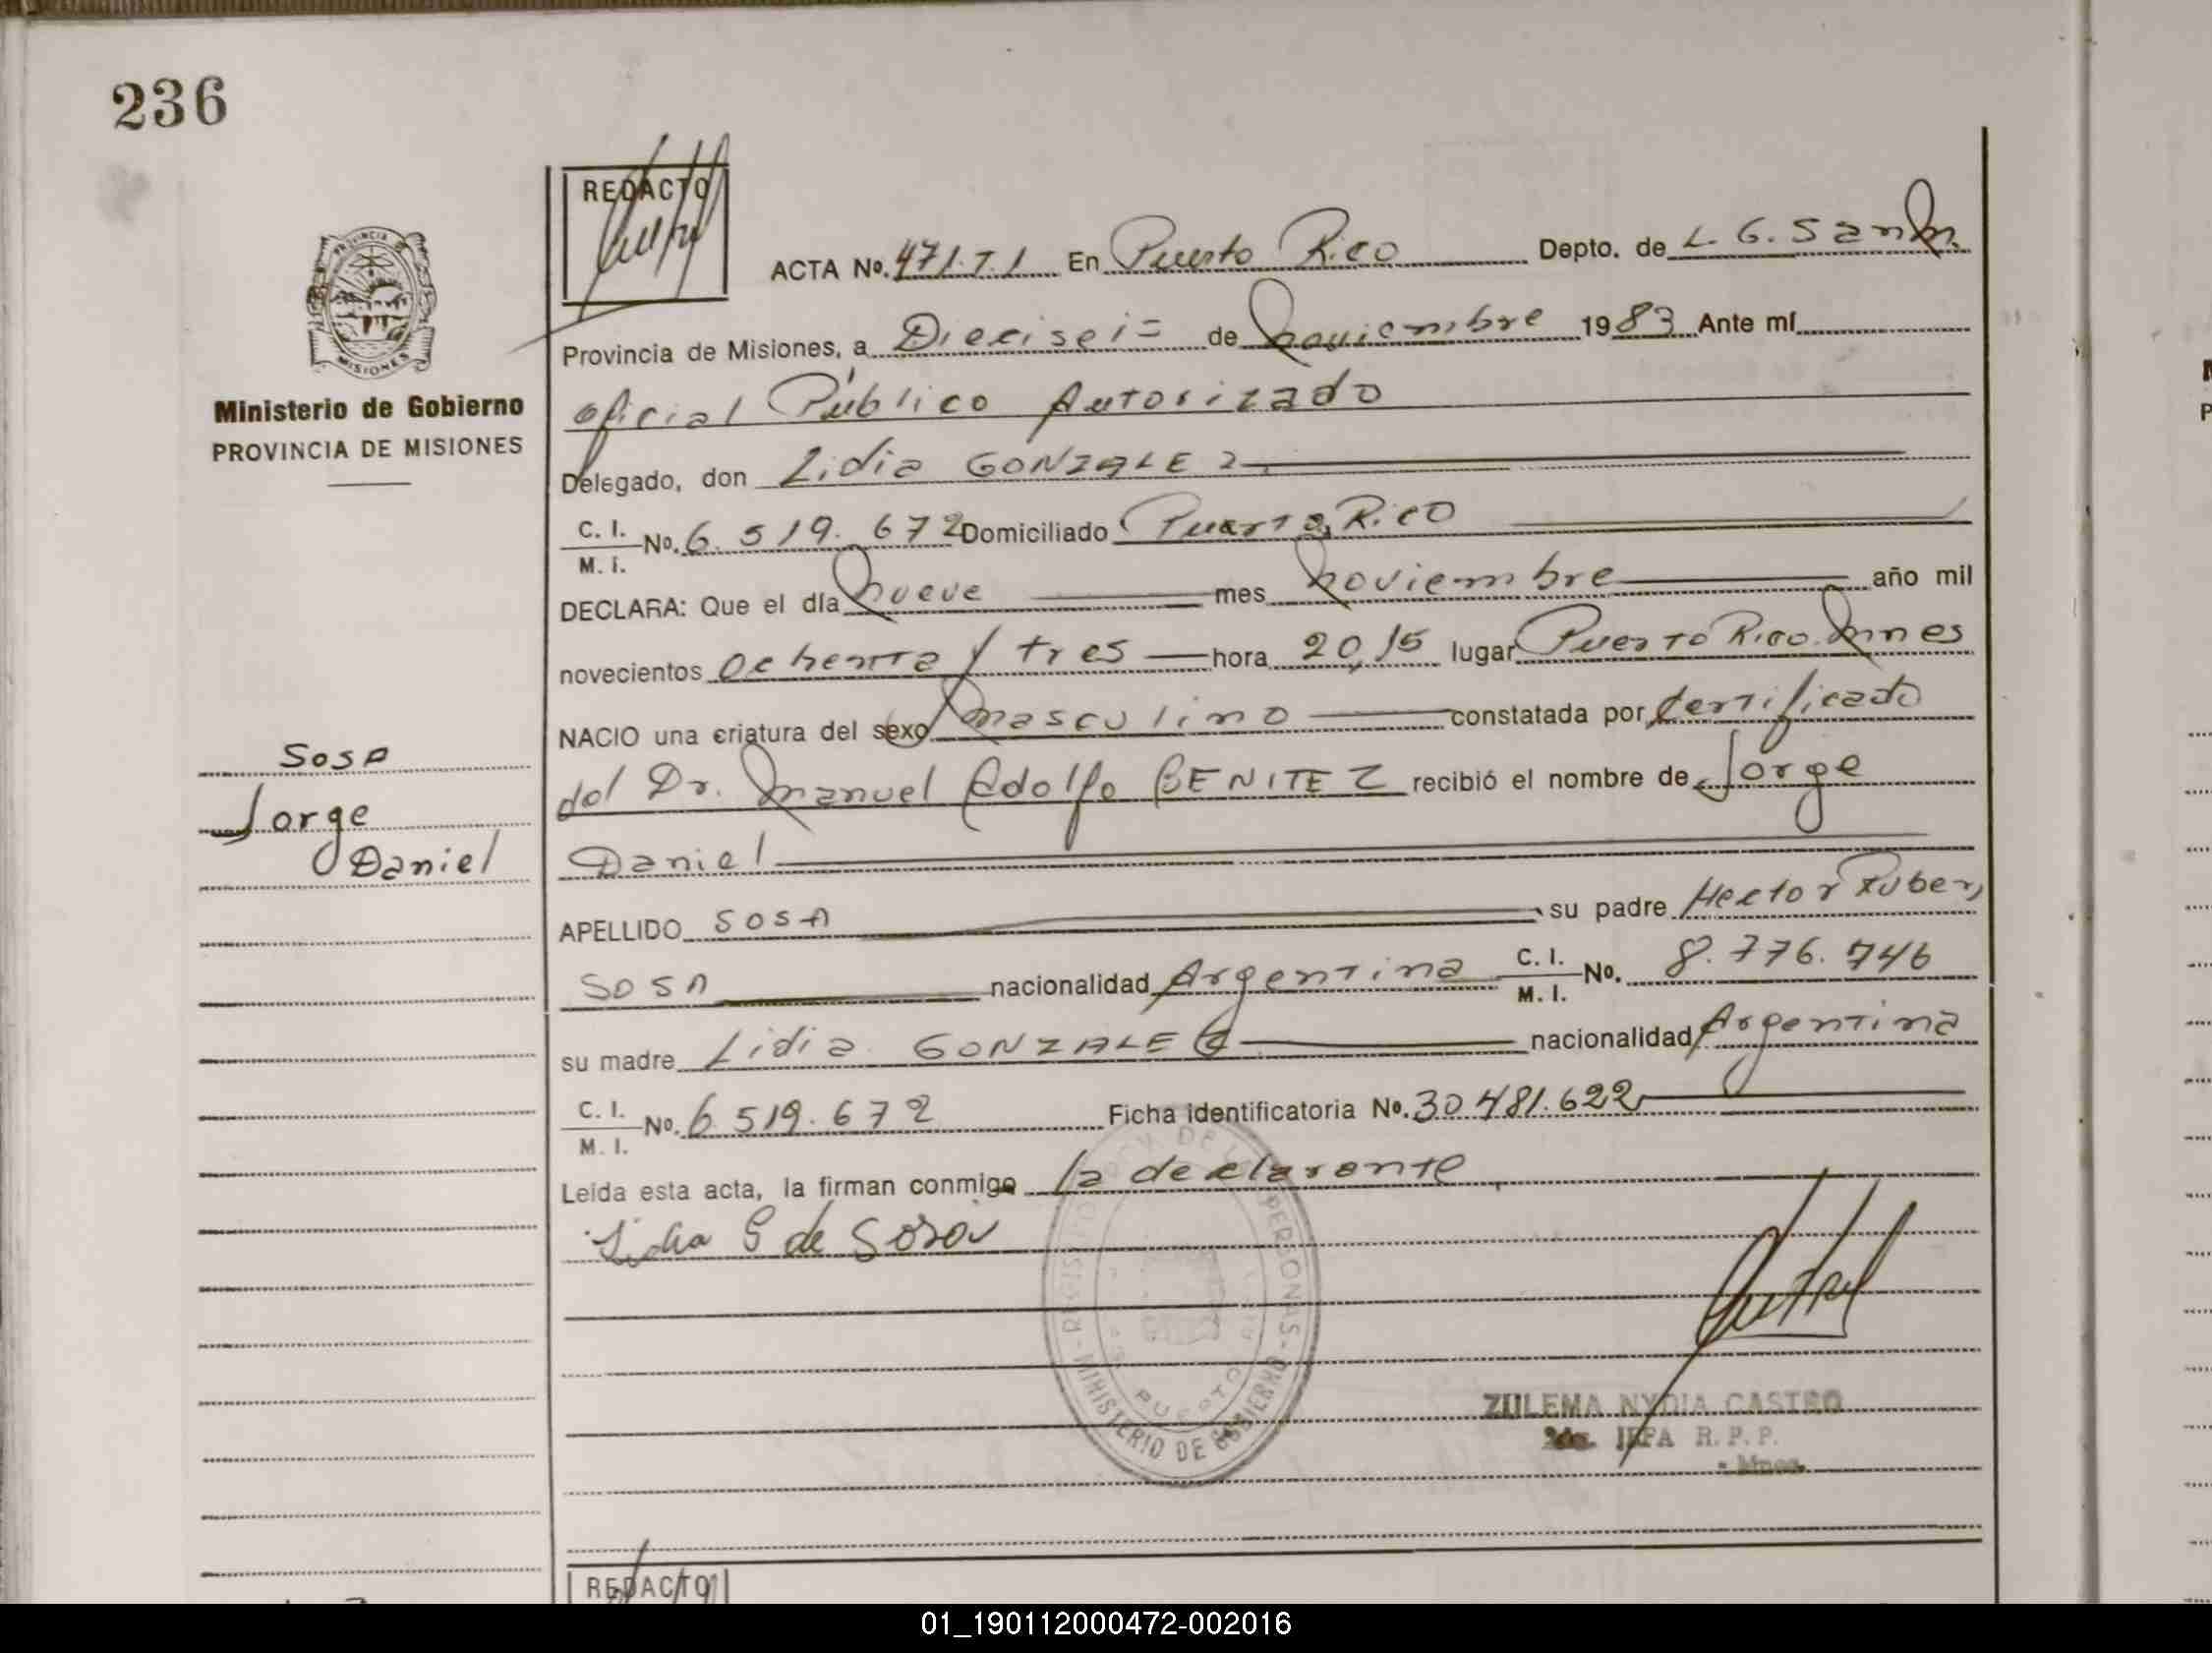 236
REDACTO
ACTA No. 471.T.I En Puerto Rico Depto. de L. G. San M.
PROVINCIA
MISIONES
Provincia de Misiones, a Dieciseis de noviembre 1983 Ante mí
Ministerio de Gobierno
PROVINCIA DE MISIONES
Oficial Público Autorizado
Delegado, don Lidia GONZALEZ
C. I.
M. I. No. 6.519.672 Domiciliado Puerto Rico
DECLARA: Que el día nueve mes noviembre año mil
novecientos ochenta y tres hora 20,15 lugar Puerto Rico Mnes
NACIO una criatura del sexo masculino constatada por Certificado
del Dr. Manuel Adolfo BENITEZ recibió el nombre de Jorge
Daniel
SOSA
Jorge
Daniel
APELLIDO SOSA su padre Hector Ruben
SOSA nacionalidad Argentina C. I.
M. I. No. 8.776.746
su madre Lidia GONZALEZ nacionalidad Argentina
C. I.
M. I. No. 6.519.672 Ficha identificatoria No. 30.481.622
Leída esta acta, la firman conmigo la declarante
Lidia G de Sosa
PERSONAS
MINISTERIO DE GOBIERNO
PUERTO
ZULEMA NYDIA CASTRO
2da. JEFA R. P. P.
Mnes.
REDACTO
01_190112000472-002016